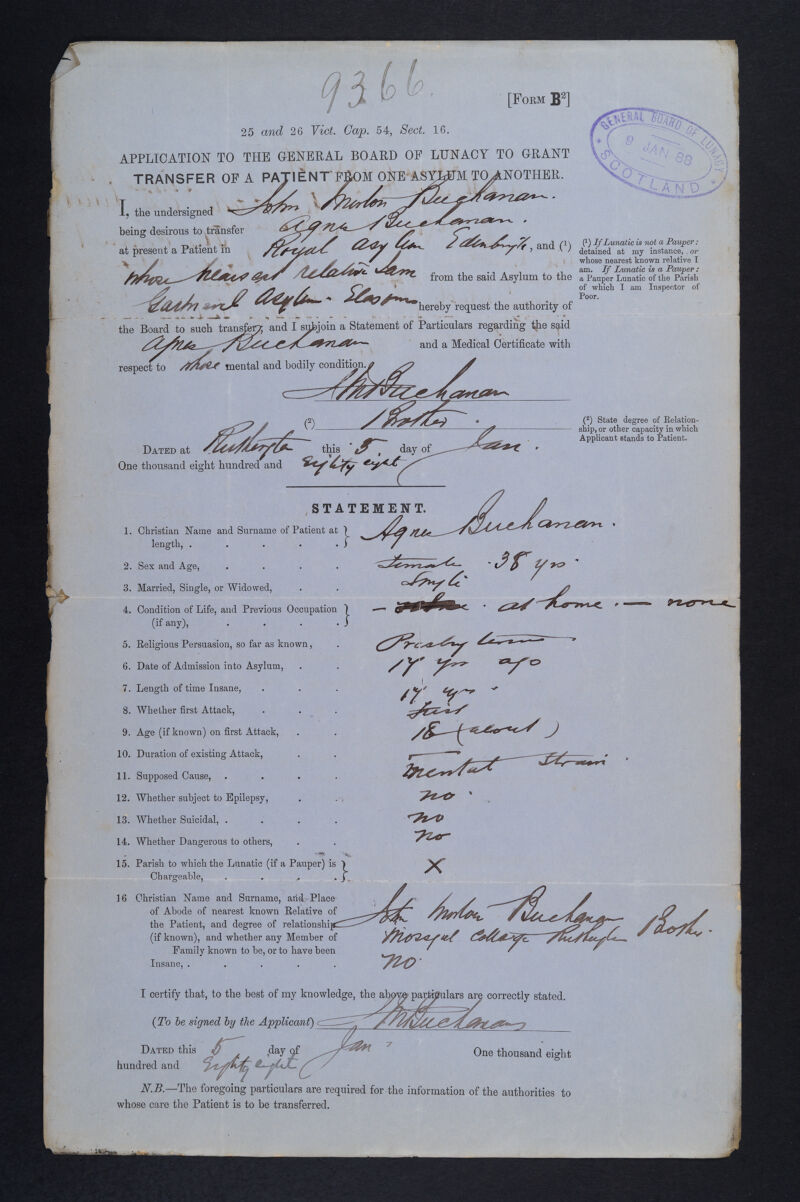 9366.
[FORM B²]
GENERAL BOARD OF LUNACY
9 JAN 88
SCOTLAND
25 and 26 Vict. Cap. 54, Sect. 16.
APPLICATION TO THE GENERAL BOARD OF LUNACY TO GRANT
TRANSFER OF A PATIENT FROM ONE ASYLUM TO ANOTHER.
I, the undersigned John Morton Buchanan.
being desirous to transfer Agnes Buchanan.
at present a Patient in Royal Asylum Edinburgh, and (¹)
whose nearest relative I am from the said Asylum to the
Gartnavel Asylum - Glasgow hereby request the authority of
the Board to such transfer; and I subjoin a Statement of Particulars regarding the said
Agnes Buchanan and a Medical Certificate with
respect to whose mental and bodily condition.
(¹) If Lunatic is not a Pauper:
detained at my instance, or
whose nearest known relative I
am. If Lunatic is a Pauper:
a Pauper Lunatic of the Parish
of which I am Inspector of
Poor.
J M Buchanan
(²) Brother.
(²) State degree of Relation-
ship, or other capacity in which
Applicant stands to Patient.
DATED at Rutherglen this 5 day of Jan.
One thousand eight hundred and Eighty eight
STATEMENT.
1. Christian Name and Surname of Patient at
length, . . . . . Agnes Buchanan.
2. Sex and Age, . . . . Female. 38 yrs.
3. Married, Single, or Widowed, . . Single
4. Condition of Life, and Previous Occupation
(if any), . . . . - at home. - none
5. Religious Persuasion, so far as known, . Presbyterian
6. Date of Admission into Asylum, . . 17 yrs ago
7. Length of time Insane, . . . 17 yrs.
8. Whether first Attack, . . . First
9. Age (if known) on first Attack, . . 18 (about)
10. Duration of existing Attack, . . —
11. Supposed Cause, . . . . mental strain.
12. Whether subject to Epilepsy, . . no.
13. Whether Suicidal, . . . . no
14. Whether Dangerous to others, . . no
15. Parish to which the Lunatic (if a Pauper) is
Chargeable, . . . . . X
16 Christian Name and Surname, and Place
of Abode of nearest known Relative of
the Patient, and degree of relationship John Morton Buchanan
(if known), and whether any Member of Cottage Rutherglen Brother.
Family known to be, or to have been
Insane, . . . . . no.
I certify that, to the best of my knowledge, the above particulars are correctly stated.
(To be signed by the Applicant) J M Buchanan
DATED this 5 day of Jan. One thousand eight
hundred and Eighty eight
N.B.—The foregoing particulars are required for the information of the authorities to
whose care the Patient is to be transferred.